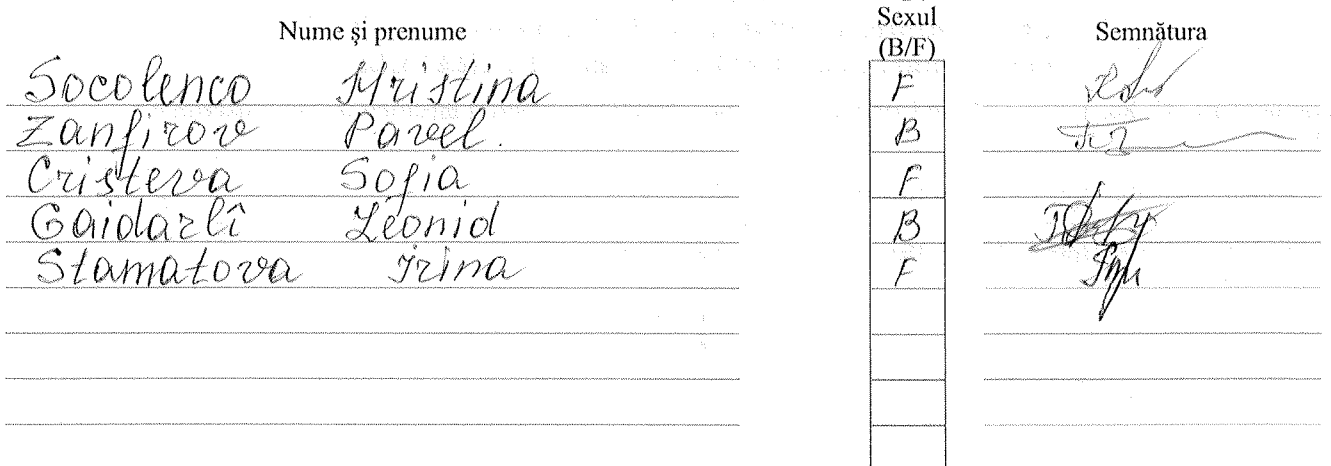 Nume și prenume Sexul (B/F) Semnătura
Socolenco Hristina F
Zanfirov Pavel. B
Cristeva Sofia F
Gaidarlî Leonid B
Stamatova Irina F